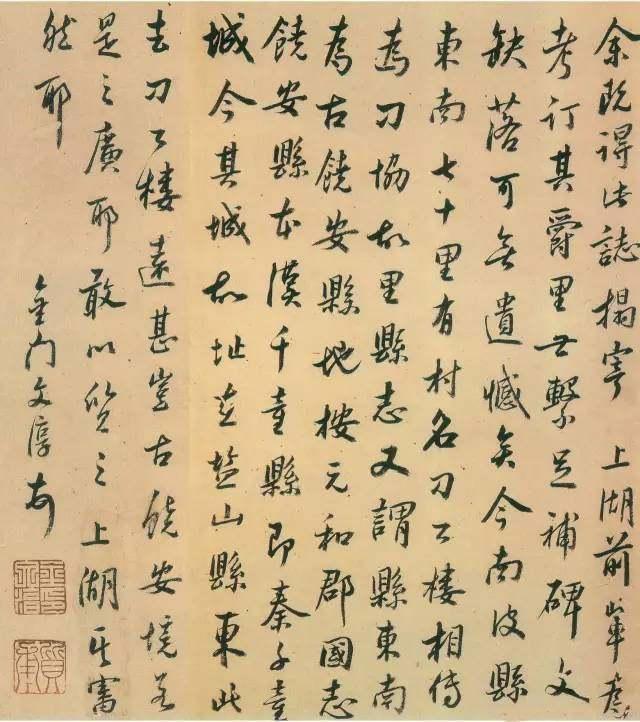 余既得此誌搨寄 上湖前輩
考訂其爵里世繫足補碑文
缺落可無遺憾矣今南皮縣
東南七十里有村名刁公樓相傳
為刁協故里縣志又謂縣東南
為古饒安縣地按元和郡國志
饒安縣本漢千童縣即秦千童
城今其城故址在鹽山縣東此
去刁公樓遠甚豈古饒安境若
是之廣耶敢以質之 上湖其審
然耶
金門文淳
金印文淳
質甫